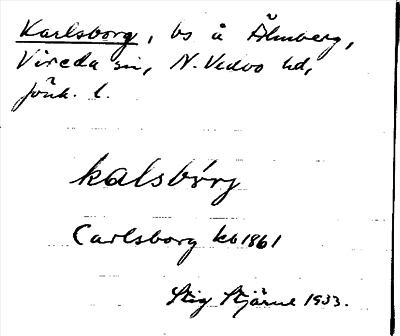 Karlsborg, bs å Älmberg,
Vireda sn, N. Vedbo hd,
Jönk. l.
kalsbórg
Carlsborg kb 1861
Stig Stjärne 1933.